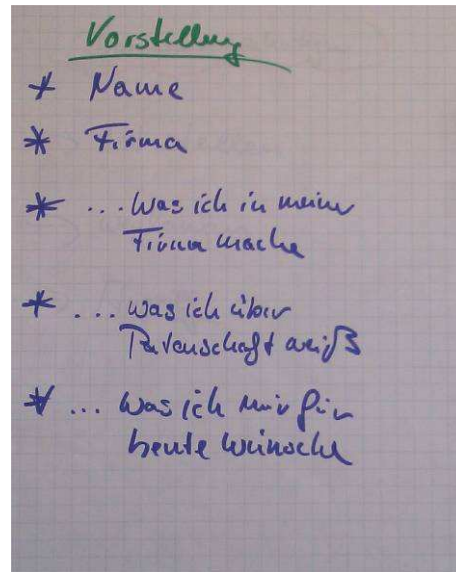 Vorstellung
* Name
* Firma
* ... Was ich in meiner
Firma mache
* ... was ich über
Patenschaft weiß
* ... Was ich mir für
heute wünsche